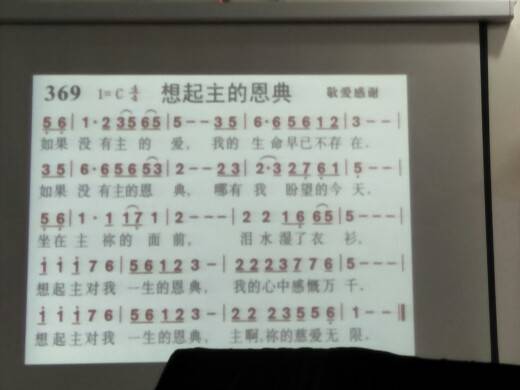 369 1=C 4/4 想起主的恩典 敬爱感谢
5 6 | 1 · 2 35 65 | 5 - - 3 5 | 6 · 6 5 6 1 2 | 3 - - |
如果 没有主的 爱, 我的生命早已不存在.
3 5 | 6 · 6 5 6 53 | 2 - - 2 3 | 2 · 3 2 7 6 1 | 5 - - - |
如果 没有主的恩 典, 哪有我 盼望的今天.
5 6 | 1 · 1 17 1 | 2 - - - | 2 2 1 6 65 | 5 - - - |
坐在主 祢的面前, 泪水湿了衣衫.
1 1 1 7 6 | 5 6 1 2 3 - | 2 2 2 3 7 6 | 5 - - - |
想起主对我 一生的恩典, 我的心中感慨万千.
1 1 1 7 6 | 5 6 1 2 3 - | 2 2 2 3 5 5 6 | 1 - - ‖
想起主对我 一生的恩典, 主啊,祢的慈爱无限.